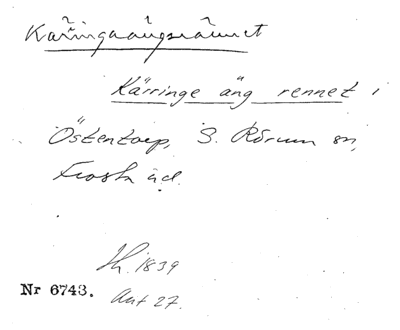 Käringaängsrännet
Kärringe äng rennet i
Östentorp, S. Rörum sn,
Frosta hd.
1839
Nr 6743. Ant 27.